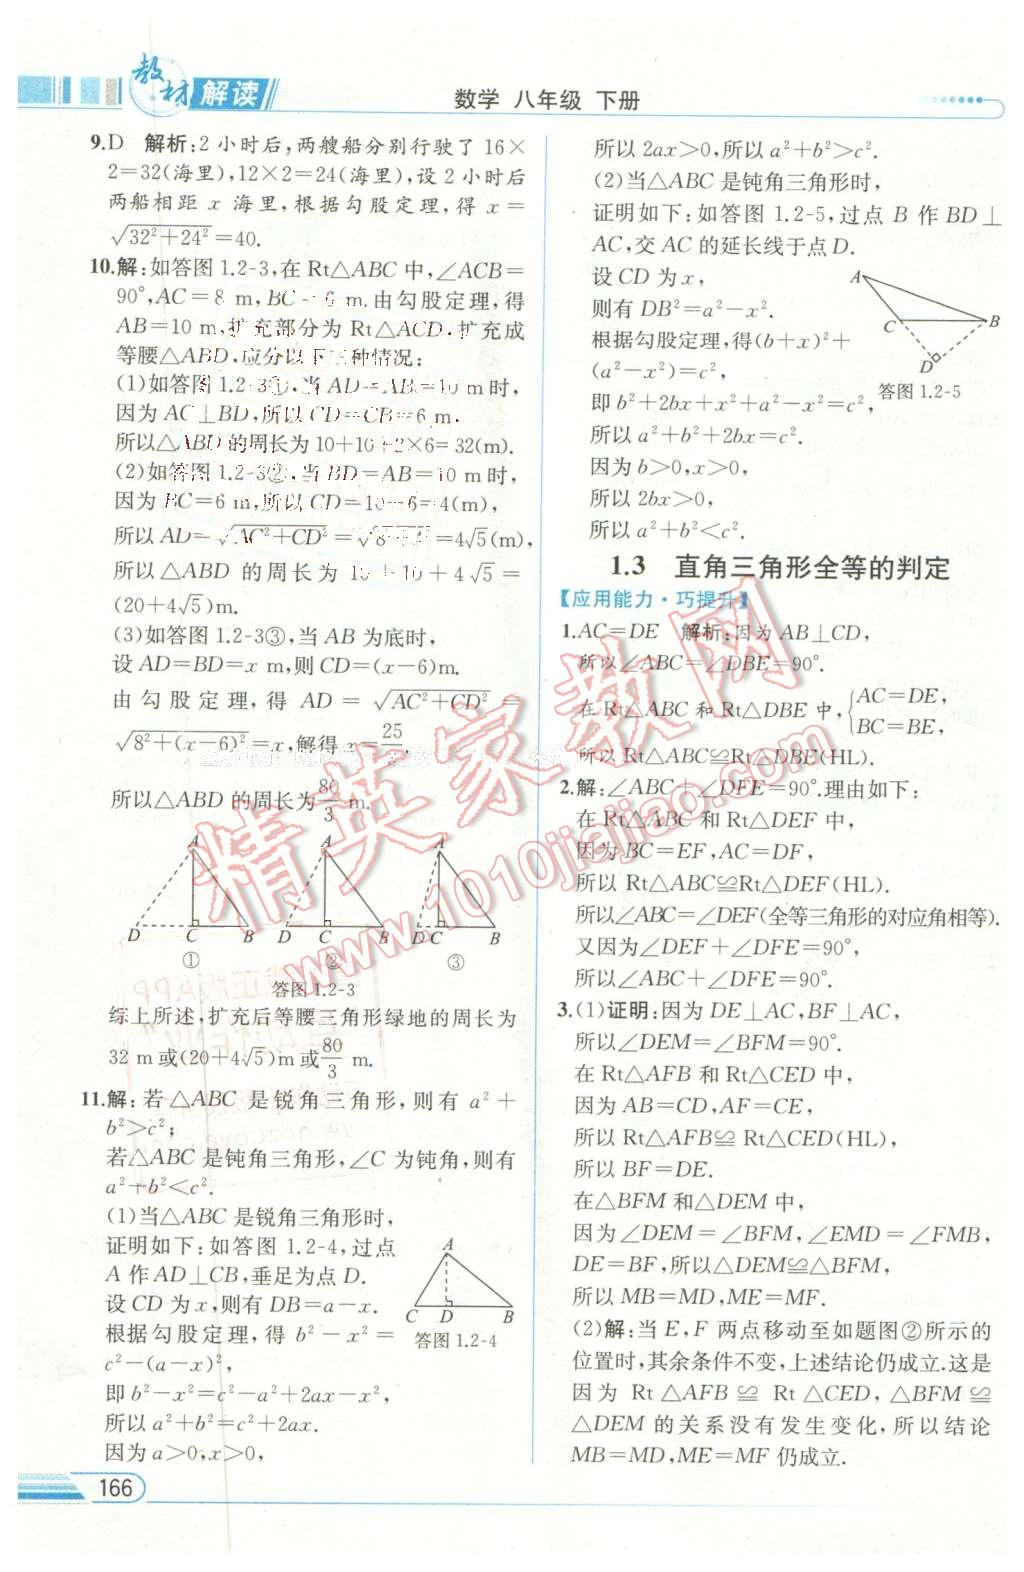 教材解读
数学 八年级 下册
9.D 解析:2 小时后,两艘船分别行驶了 16×
2=32(海里),12×2=24(海里),设 2 小时后
两船相距 x 海里,根据勾股定理,得 x=
√(32²+24²)=40.
10.解:如答图 1.2-3,在 Rt△ABC 中,∠ACB=
90°,AC=8 m,BC=6 m.由勾股定理,得
AB=10 m,扩充部分为 Rt△ACD.扩充成
等腰△ABD,应分以下三种情况:
(1)如答图 1.2-3①,当 AD=AB=10 m时,
因为 AC⊥BD,所以 CD=CB=6 m.
所以△ABD 的周长为 10+10+2×6=32(m).
(2)如答图 1.2-3②,当 BD=AB=10 m 时,
因为 BC=6 m,所以 CD=10-6=4(m),
所以 AD=√(AC²+CD²)=√(8²+4²)=4√5(m),
所以△ABD 的周长为 10+10+4√5=
(20+4√5)m.
(3)如答图 1.2-3③,当 AB 为底时,
设 AD=BD=x m,则 CD=(x-6)m.
由勾股定理,得 AD=√(AC²+CD²)=
√(8²+(x-6)²)=x,解得 x=25/3,
所以△ABD 的周长为80/3 m.
A A A
D C B D C B D C B
① ② ③
答图 1.2-3
综上所述,扩充后等腰三角形绿地的周长为
32 m或(20+4√5)m或80/3 m.
11.解:若△ABC 是锐角三角形,则有 a²+
b²>c²;
若△ABC 是钝角三角形,∠C 为钝角,则有
a²+b²<c².
(1)当△ABC 是锐角三角形时,
证明如下:如答图 1.2-4,过点
A 作 AD⊥CB,垂足为点 D.
设 CD 为 x,则有 DB=a-x.
根据勾股定理,得 b²-x²=
c²-(a-x)²,
即 b²-x²=c²-a²+2ax-x²,
所以 a²+b²=c²+2ax.
因为 a>0,x>0,
A
C D B
答图 1.2-4
166
所以 2ax>0,所以 a²+b²>c².
(2)当△ABC 是钝角三角形时,
证明如下:如答图 1.2-5,过点 B 作 BD⊥
AC,交 AC 的延长线于点 D.
设 CD 为 x,
则有 DB²=a²-x².
根据勾股定理,得(b+x)²+
(a²-x²)=c²,
即 b²+2bx+x²+a²-x²=c²,
所以 a²+b²+2bx=c².
因为 b>0,x>0,
所以 2bx>0,
所以 a²+b²<c².
A
C B
D
答图 1.2-5
1.3 直角三角形全等的判定
【应用能力·巧提升】
1.AC=DE 解析:因为 AB⊥CD,
所以∠ABC=∠DBE=90°.
在 Rt△ABC 和 Rt△DBE 中,{AC=DE,
BC=BE,
所以 Rt△ABC≌Rt△DBE(HL).
2.解:∠ABC+∠DFE=90°.理由如下:
在 Rt△ABC 和 Rt△DEF 中,
因为 BC=EF,AC=DF,
所以 Rt△ABC≌Rt△DEF(HL).
所以∠ABC=∠DEF(全等三角形的对应角相等).
又因为∠DEF+∠DFE=90°,
所以∠ABC+∠DFE=90°.
3.(1)证明:因为 DE⊥AC,BF⊥AC,
所以∠DEM=∠BFM=90°.
在 Rt△AFB 和 Rt△CED 中,
因为 AB=CD,AF=CE,
所以 Rt△AFB≌ Rt△CED(HL),
所以 BF=DE.
在△BFM 和△DEM 中,
因为∠DEM=∠BFM,∠EMD=∠FMB,
DE=BF,所以△DEM≌△BFM,
所以 MB=MD,ME=MF.
(2)解:当 E,F 两点移动至如题图②所示的
位置时,其余条件不变,上述结论仍成立.这是
因为 Rt△AFB≌ Rt△CED,△BFM≌
△DEM 的关系没有发生变化,所以结论
MB=MD,ME=MF 仍成立.
精英家教网
www.1010jiajiao.com